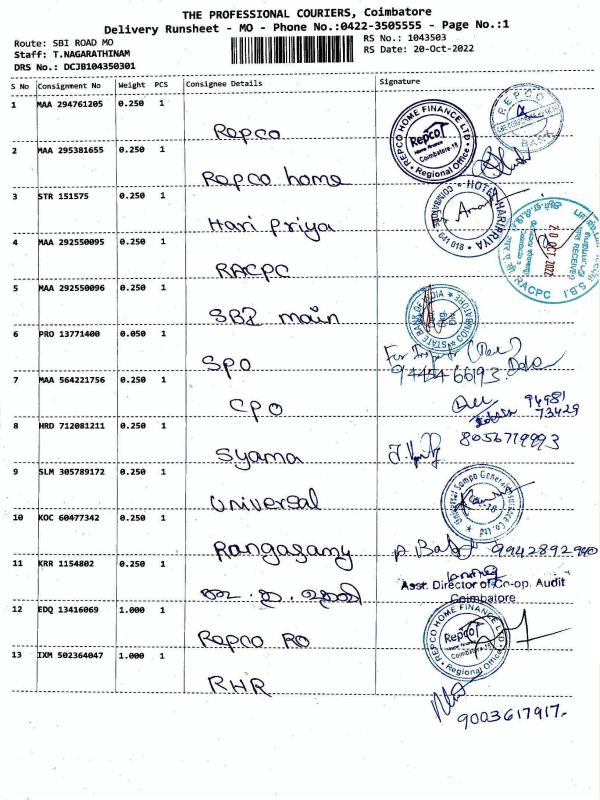 THE PROFESSIONAL COURIERS, Coimbatore
Delivery Runsheet - MO - Phone No.:0422-3505555 - Page No.:1
Route: SBI ROAD MO
RS No.: 1043503
Staff: T.NAGARATHINAM
RS Date: 20-Oct-2022
DRS No.: DCJB104350301
S No Consignment No Weight PCS Consignee Details Signature
1 MAA 294761205 0.250 1
Repco
REPCO HOME FINANCE LTD
Repco
Coimbatore-18
Regional Office
REPCO
BANK
2 MAA 295381655 0.250 1
Repco home
3 STR 151575 0.250 1
Hari priya
HOTEL HARIPRIYA
COIMBATORE
641 018
4 MAA 292550095 0.250 1
RACPC
20 OCT 2022
RACPC S.B.I.
5 MAA 292550096 0.250 1
SBI main
STATE BANK OF INDIA
COIMBATORE
6 PRO 13771400 0.050 1
SPO
94454 66193
7 MAA 564221756 0.250 1
CPO
94981
73429
8 HRD 712081211 0.250 1
Syama
8056719993
9 SLM 305789172 0.250 1
Universal
Universal Sompo General Insurance Co. Ltd
10 KOC 60477342 0.250 1
Rangasamy
9942892940
11 KRR 1154802 0.250 1
Asst. Director of Co-op. Audit
Coimbatore
12 EDQ 13416069 1.000 1
Repco RO
REPCO HOME FINANCE LTD
Repco
Home Finance
Coimbatore-18
Regional Office
13 IXM 502364047 1.000 1
RHR
9003617917.